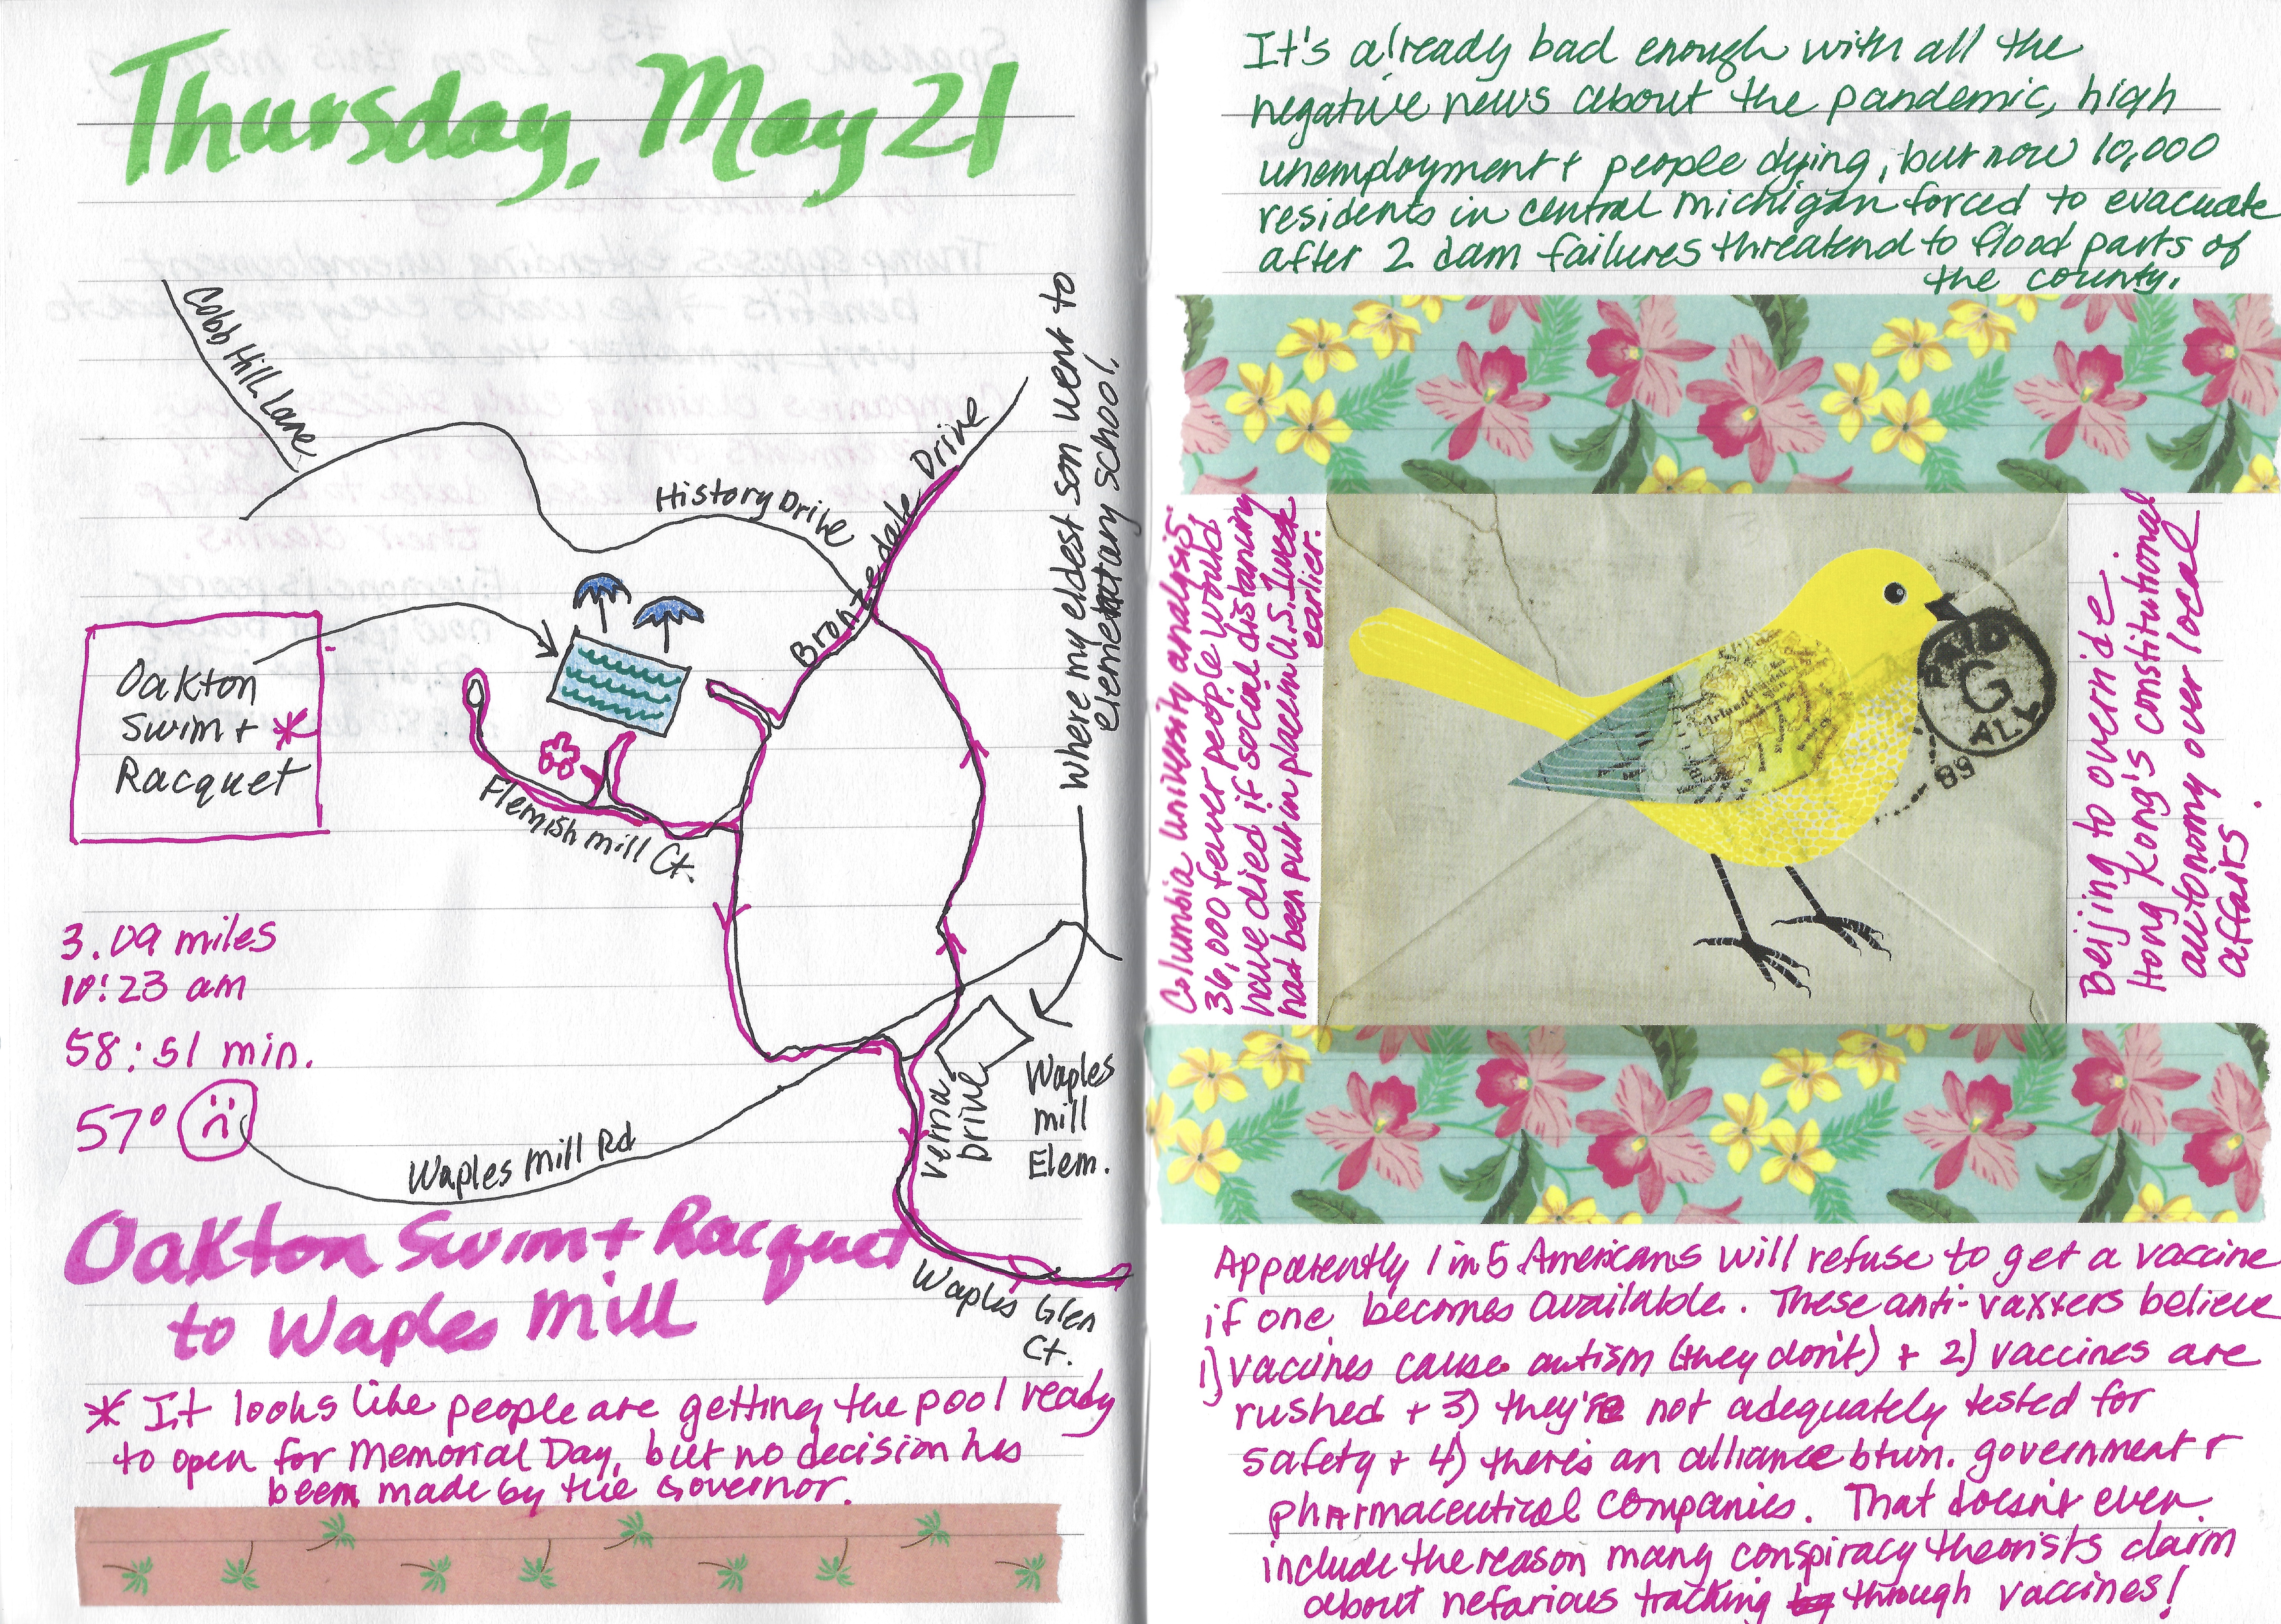 Thursday, May 21
Cobb Hill Lane
History Drive
Brontedale Drive
where my eldest son went to
elementary school.
Oakton
Swim +
Racquet
*
Flemish Mill Ct.
3.09 miles
10:23 am
58:51 min.
57°
Waples Mill Rd
Verna
Drive
Waples
Mill
Elem.
Oakton Swim + Racquet
to Waples Mill
Waples Glen
Ct.
* It looks like people are getting the pool ready
to open for Memorial Day, but no decision has
been made by the Governor.
It's already bad enough with all the
negative news about the pandemic, high
unemployment + people dying, but now 10,000
residents in central Michigan forced to evacuate
after 2 dam failures threatend to flood parts of
the county.
Columbia University analysis:
36,000 fewer people would
have died if social distancing
had been put in place in U.S. 1 week
earlier.
PAID
G
ALY
89
Irland
Beijing to override
Hong Kong's constitutional
autonomy over local
affairs.
Apparently 1 in 5 Americans will refuse to get a vaccine
if one becomes available. These anti-vaxxers believe
1) vaccines cause autism (they don't) + 2) vaccines are
rushed + 3) they're not adequately tested for
safety + 4) there's an alliance btwn. government +
pharmaceutical companies. That doesn't even
include the reason many conspiracy theorists claim
about nefarious tracking through vaccines!